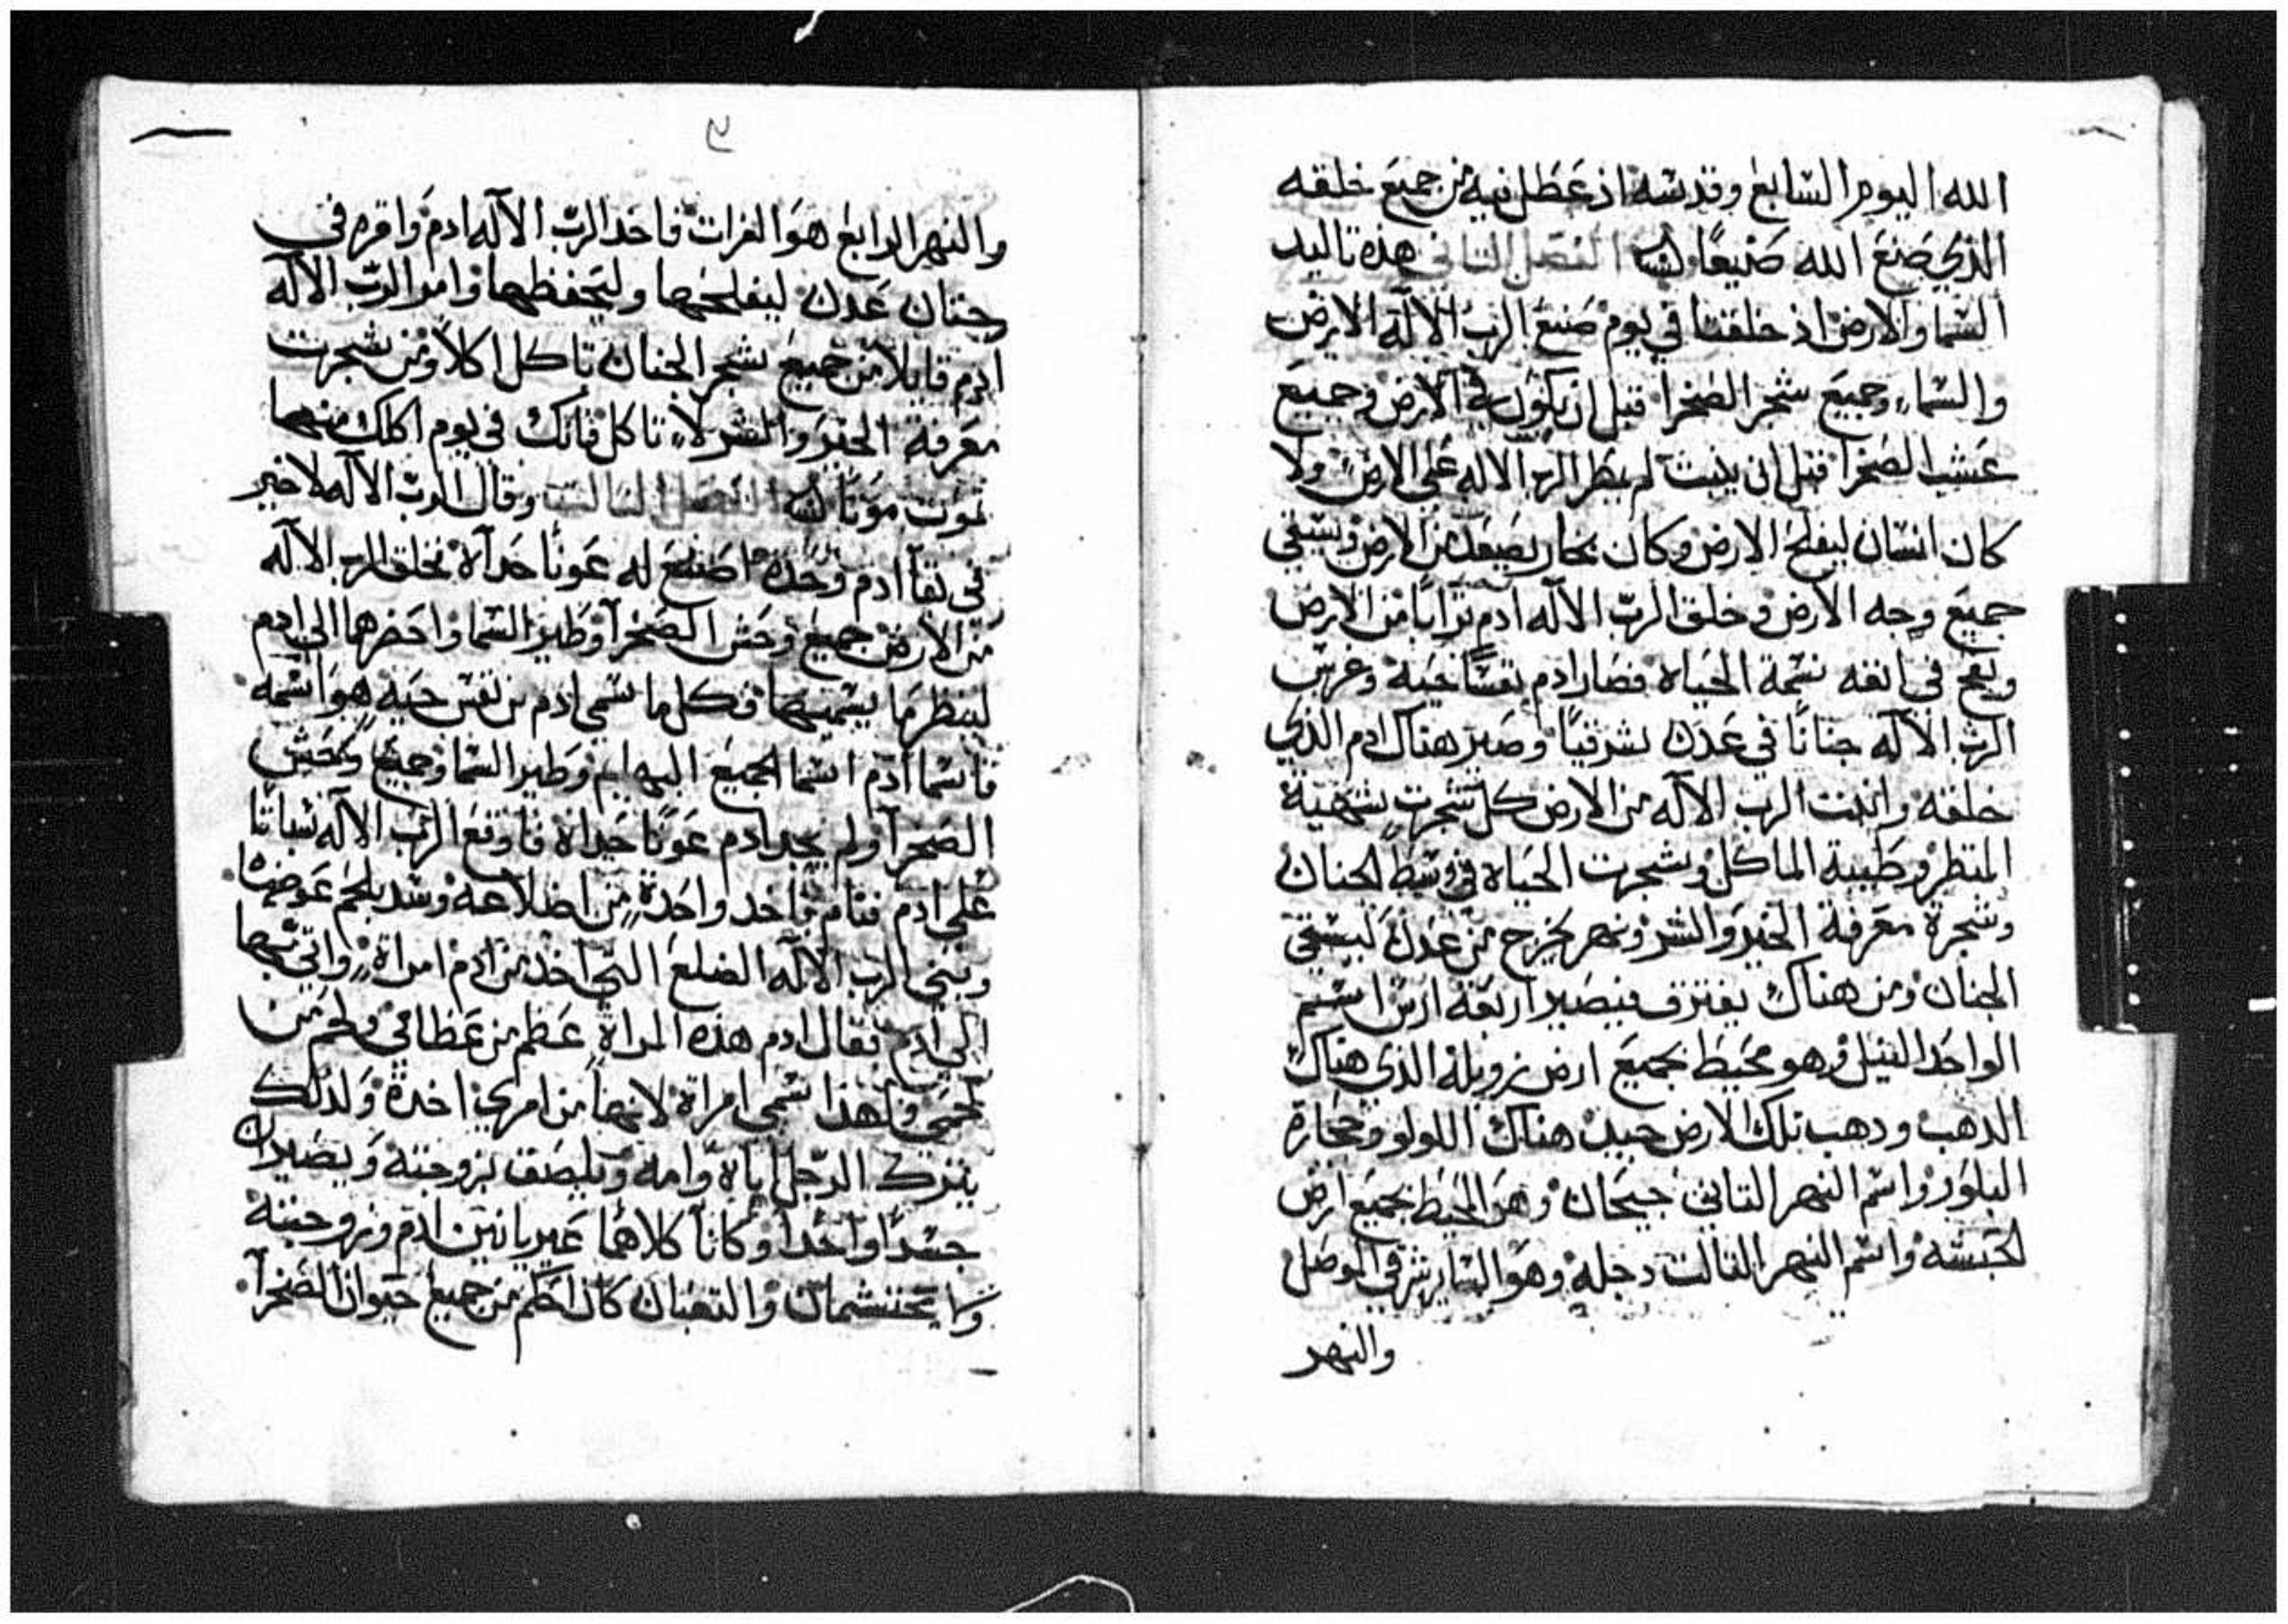 الله اليوم السابع وقدسه اذ عطل فيه من جميع خلقه
الذي صنع الله صنيعًا الفصل الثاني هذه تاليد
السما والارض اذ خلقتا في يوم صنع الرب الاله الارض
والسماء وجميع شجر الصحرا قبل ان يكون في الارض وجميع
عشب الصحرا قبل ان ينبت لم يمطر الرب الاله على الارض ولا
كان انسان ليفلح الارض وكان بخار يصعد من الارض ويسقي
جميع وجه الارض وخلق الرب الاله ادم ترابًا من الارض
ونفخ في انفه نسمة الحياة فصار ادم نفسًا حية وغرس
الرب الاله جنانًا في عدن شرقيًا وصير هناك ادم الذي
خلقه وانبت الرب الاله من الارض كل شجرت شهية
المنظر وطيبة الماكل وشجرت الحياة في وسط الجنان
وشجرة معرفة الخير والشر ونهر يخرج من عدن ليسقي
الجنان ومن هناك يفترق فيصير اربعة ارس اسم
الواحد النيل وهو محيط بجميع ارض زويلة الذي هناك
الذهب ودهب تلك الارض جيد هناك اللولو وحجارة
البلور واسم النهر التاني جيحان وهو المحيط بجميع ارض
الحبشه واسم النهر التالت دجله وهو الساير شرقي الموصل
والنهر
والنهر الرابع هو الفرات فاخد الرب الاله ادم واقره في
جنان عدن ليفلحها وليحفظها وامر الرب الاله
ادم قايلا من جميع شجر الجنان تاكل اكلاً ومن شجرت
معرفة الخير والشر لا تاكل فانك في يوم اكلك منها
تموت موتًا الفصل التالت وقال الرب الاله لا خير
في بقا ادم وحده اصنع له عونًا حداه فخلق الرب الاله
من الارض جميع وحش الصحرا وطير السما واحضرها الى ادم
لينظر ما يسميها فكل ما سمى ادم من نفس حية هو اسمه
فاسما ادم اسما لجميع البهايم وطير السما وجميع وحش
الصحرا ولم يجد ادم عونًا حداه فاوقع الرب الاله سباتا
على ادم فنام فاخد واحدة من اضلاعه وسد بلحم عوضها
وبنى الرب الاله الضلع التي اخد من ادم امراة واتى بها
الى ادم فقال ادم هذه المراة عظم من عظامي ولحم من
لحمي ولهذا تسمى امراة لانها من امري اخدة ولدلك
يترك الرجل اباه وامه ويلصق بزوجته ويصيران
جسدًا واحدًا وكانا كلاهما عريانين ادم وزوجته
ولا يحتشمان والتعبان كان احكم من جميع حيوان الصحرا